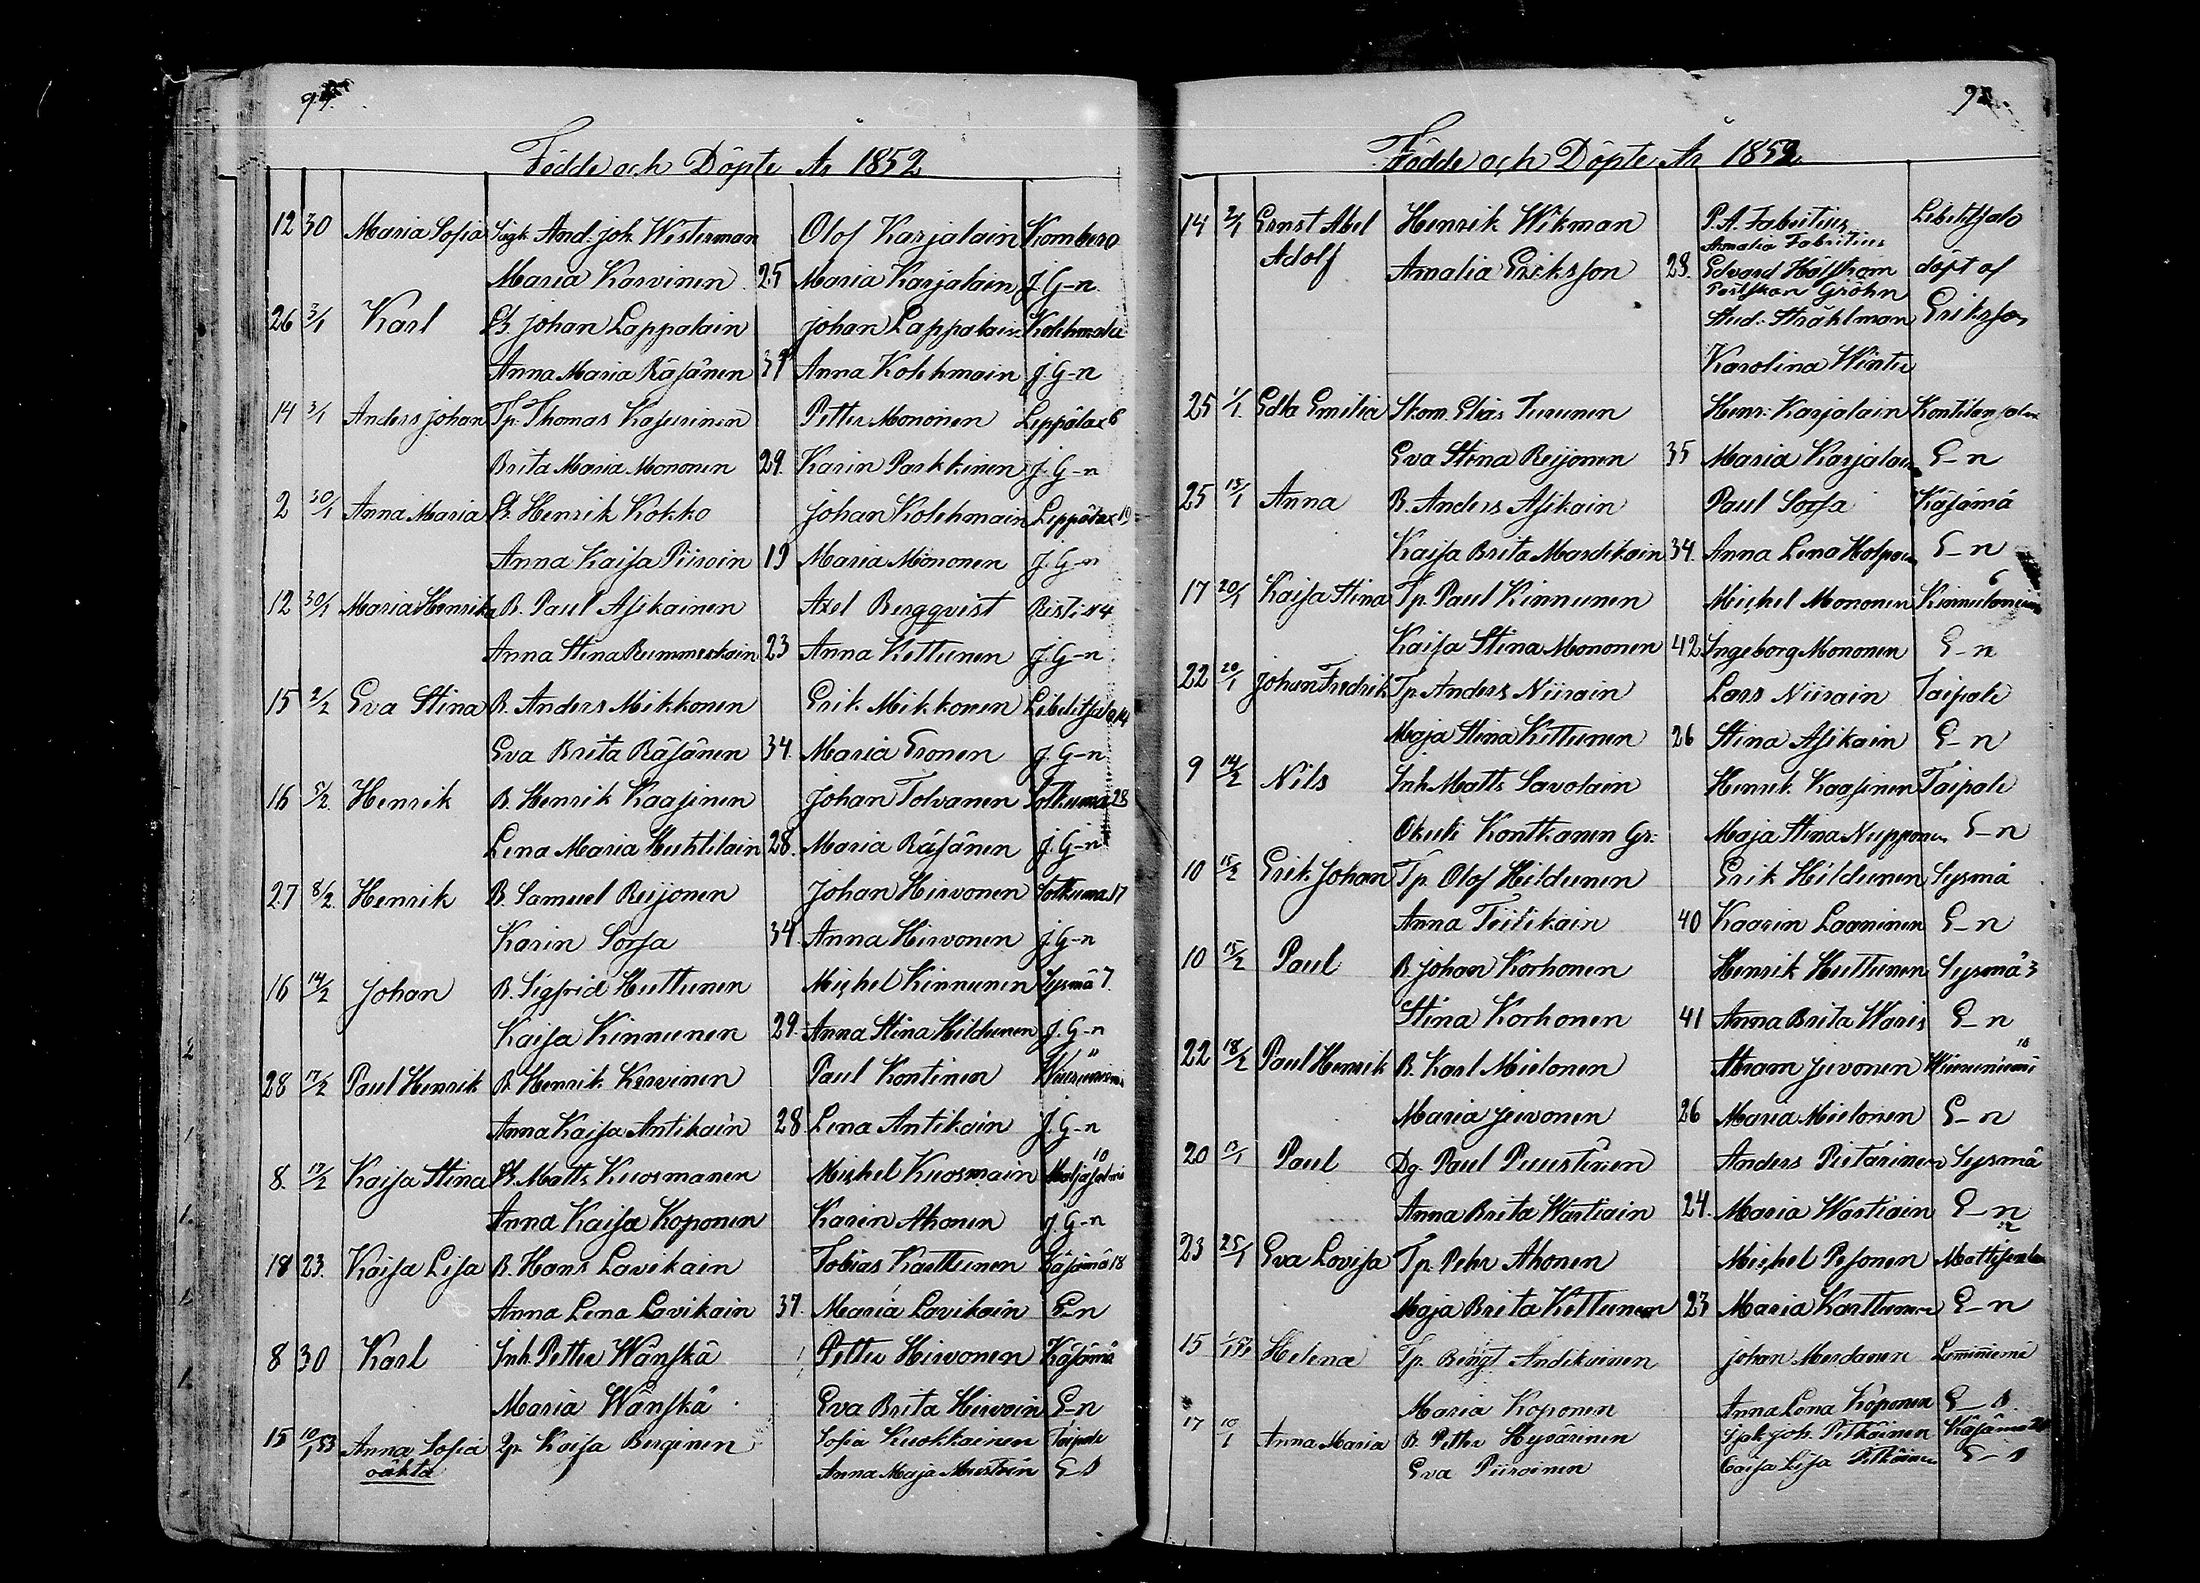 97.
Födde och Döpte År 1852
12 30 Maria Sofia And: Joh Westerman Olof Karjalain Kombero
Maria Karvinen 25 Maria Karjalain J. G-n
26 3/1 Karl B. Johan Lappalain Johan Lappalain
Anna Maria Räsänen 37 Anna Kolehmain J. G-n
14 3/1 Anders Johan Tp. Thomas Kajurinen Petter Mononen Leppälax 6
Brita Maria Mononen 29. Karin Parkkinen J. G-n
2 30/1 Anna Maria B. Henrik Kokko Johan Kolehmain Leppälax 19
Anna Kaisa Piiroin 19 Maria Mononen J. G-n
12 30/1 Maria Henrika B. Paul Asikainen Axel Bergqvist Risti 14
Anna Stina 23 Anna Kettunen J. G-n
15 2/2 Eva Stina B. Anders Mikkonen Erik Mikkonen Libelitsalo 14
Eva Brita Räsänen 34. Maria Eronen J. G-n
16 5/2 Henrik B. Henrik Kaasinen Johan Tolvanen Sotkuma 28
Lena Maria Huhtilain 28. Maria Räsänen J. G-n
27 8/2 Henrik B. Samuel Reijonen Johan Hirvonen Sotkuma 17
Karin Sorsa 34. Anna Hirvonen J. G-n
16 14/2 Johan B. Sigfrid Huttunen Michel Kinnunen Sysmä 7.
Kaisa Kinnunen 29. Anna Stina Hildunen J. G-n
28 17/2 Paul Henrik B. Henrik Karvinen Paul Kontinen
Anna Kaisa Antikain 28. Lena Antikain J. G-n
8. 17/2 Kaisa Stina B. Matts Kuosmanen Michel Kuosmain 10
Anna Kaisa Koponen Karin Ahonen J. G-n
18 23. Kaisa Lisa B. Hans Lavikain Tobias Karttunen Käsämä 18
Anna Lena Lavikain 37. Maria Lavikain E-n
8 30 Karl Inh. Petter Wänskä Petter Hirvonen Käsämä
Maria Wänskä Eva Brita Hirvoin E-n
15 10/1 53 Anna Sofia Kaisa Berginen Sofia Kuokkainen Taipale
oäkta Anna Maja E S
Födde och Döpte År 1852
14 2/1 Ernst Abel Henrik Wikman P. A. Fabritius Libelitsalo
Amalia Fabritius
Adolf Amalia Eriksson 28. Edvard Höfström döpt af
Gröhn
Stud: Stråhlman Eriksson
Karolina Winter
25 1/1 Edla Emilia Skom. Elias Turunen Henr: Karjalain
Eva Stina Reijonen 35 Maria Karjalain E-n
25 15/1 Anna B. Anders Asikain Paul Sorsa Käsämä
Kaisa Brita Mardikain 34 Anna Lena E-n
17 20/1 Kaisa Stina Tp. Paul Kinnunen Michel Mononen 6
Kaisa Stina Mononen 42 Ingeborg Mononen E-n
22 20/1 Johan Fredrik Tp. Anders Niirain Lars Niirain Taipale
Maja Stina Kettunen 26 Stina Asikain E-n
9 14/2 Nils Inh. Matts Savolain Henrik Kaasinen Taipale
Kontkanen Maja Stina Nupponen E-n
10 15/2 Erik Johan Tp. Olof Hildunen Erik Hildunen Sysmä
Anna Teilikain 40 Kaarin Laaninen E-n
10 15/2 Paul B. Johan Korhonen Henrik Huttunen Sysmä 3
Stina Korhonen 41 Anna Brita Waris E-n
22 18/2 Paul Henrik B. Karl Mielonen Abram Juvonen Wiiriniemi 18
Maria Juvonen 26 Maria Mielonen E-n
20 13/1 Paul Dg. Paul Puustinen Anders Pietarinen Sysmä
Anna Brita Wartiain 24. Maria Wartiain E-n
23 25/1 Eva Lovisa Tp. Pehr Ahonen Michel Pesonen 12
Maja Brita Kettunen 23 Maria Karttunen E-n
15 Helena Tp. Bengt Andikainen Johan
Maria Koponen Anna Lena Koponen E-S
17 10/1 Anna Maria B. Petter Hyvärinen Joh. Pitkäinen Käsämä
Eva Piiroinen Caisa Lisa Pitkäinen E-S